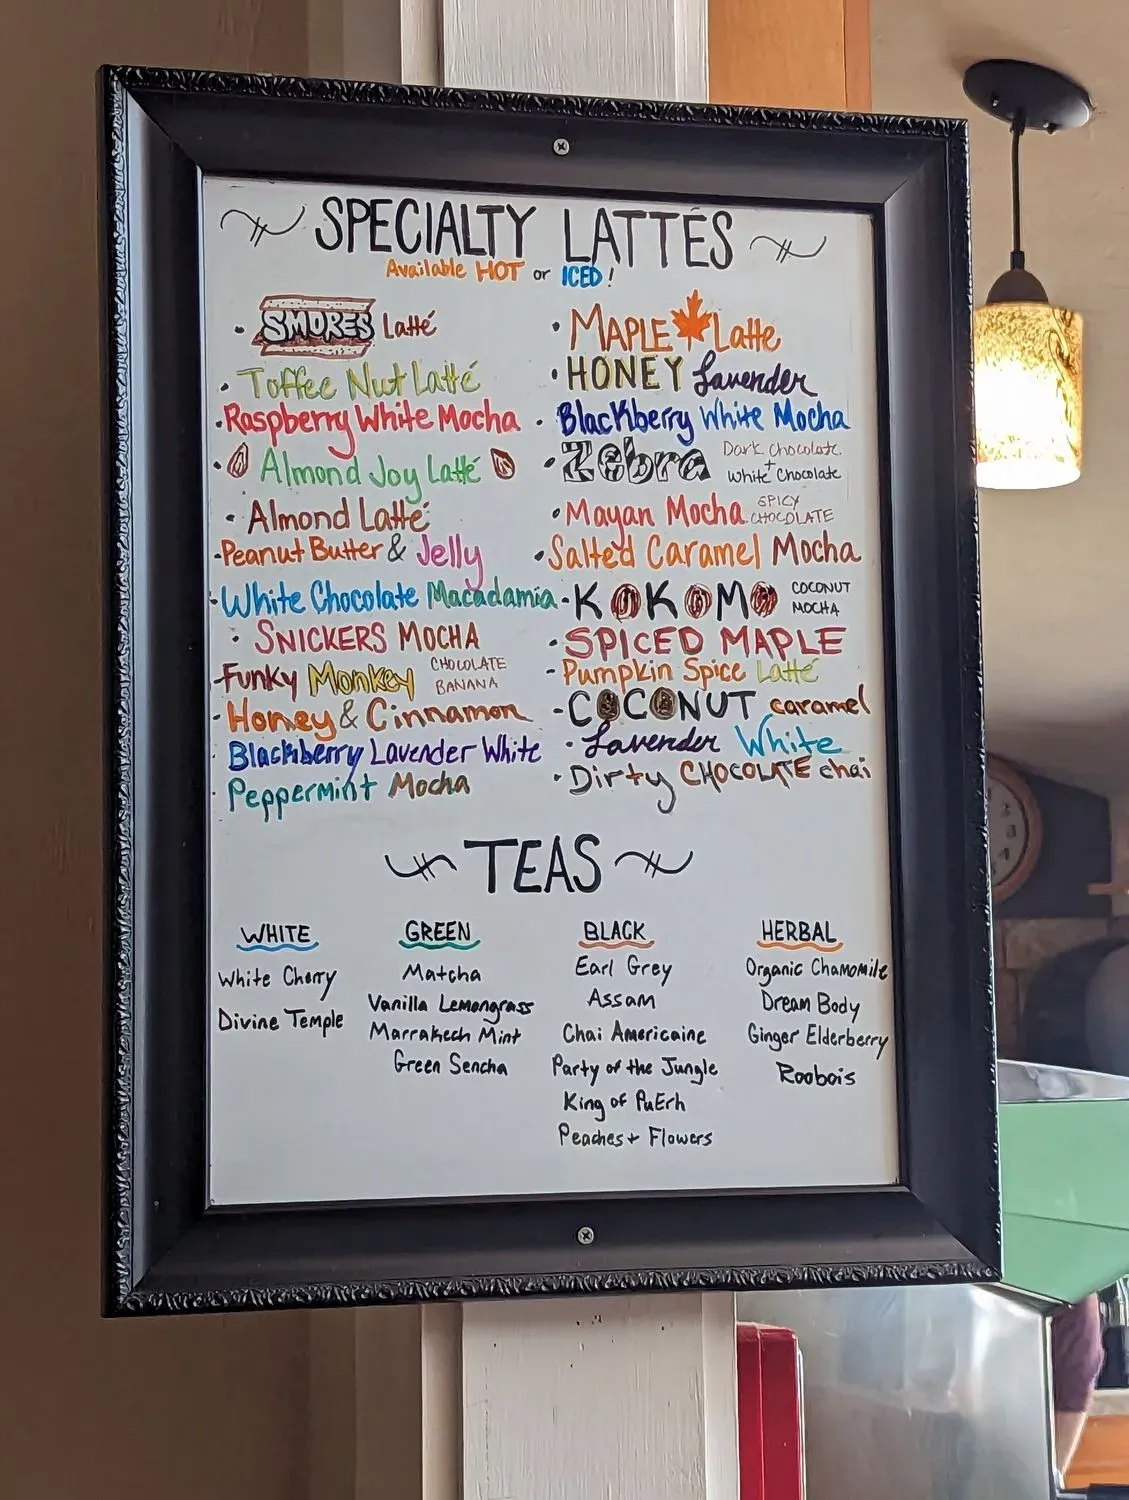 SPECIALTY LATTÉS
Available HOT or ICED!
SMORES Latté
Toffee Nut Latté
Raspberry White Mocha
Almond Joy Latté
Almond Latté
Peanut Butter & Jelly
White Chocolate Macadamia
SNICKERS MOCHA
Funky Monkey CHOCOLATE BANANA
Honey & Cinnamon
Blackberry Lavender White
Peppermint Mocha
MAPLE Latte
HONEY Lavender
Blackberry White Mocha
Zebra Dark Chocolate + White Chocolate
Mayan Mocha SPICY CHOCOLATE
Salted Caramel Mocha
KOKOMO COCONUT MOCHA
SPICED MAPLE
Pumpkin Spice Latté
COCONUT caramel
Lavender White
Dirty CHOCOLATE chai
TEAS
WHITE
White Cherry
Divine Temple
GREEN
Matcha
Vanilla Lemongrass
Marrakech Mint
Green Sencha
BLACK
Earl Grey
Assam
Chai Americaine
Party of the Jungle
King of PuErh
Peaches + Flowers
HERBAL
Organic Chamomile
Dream Body
Ginger Elderberry
Roobois